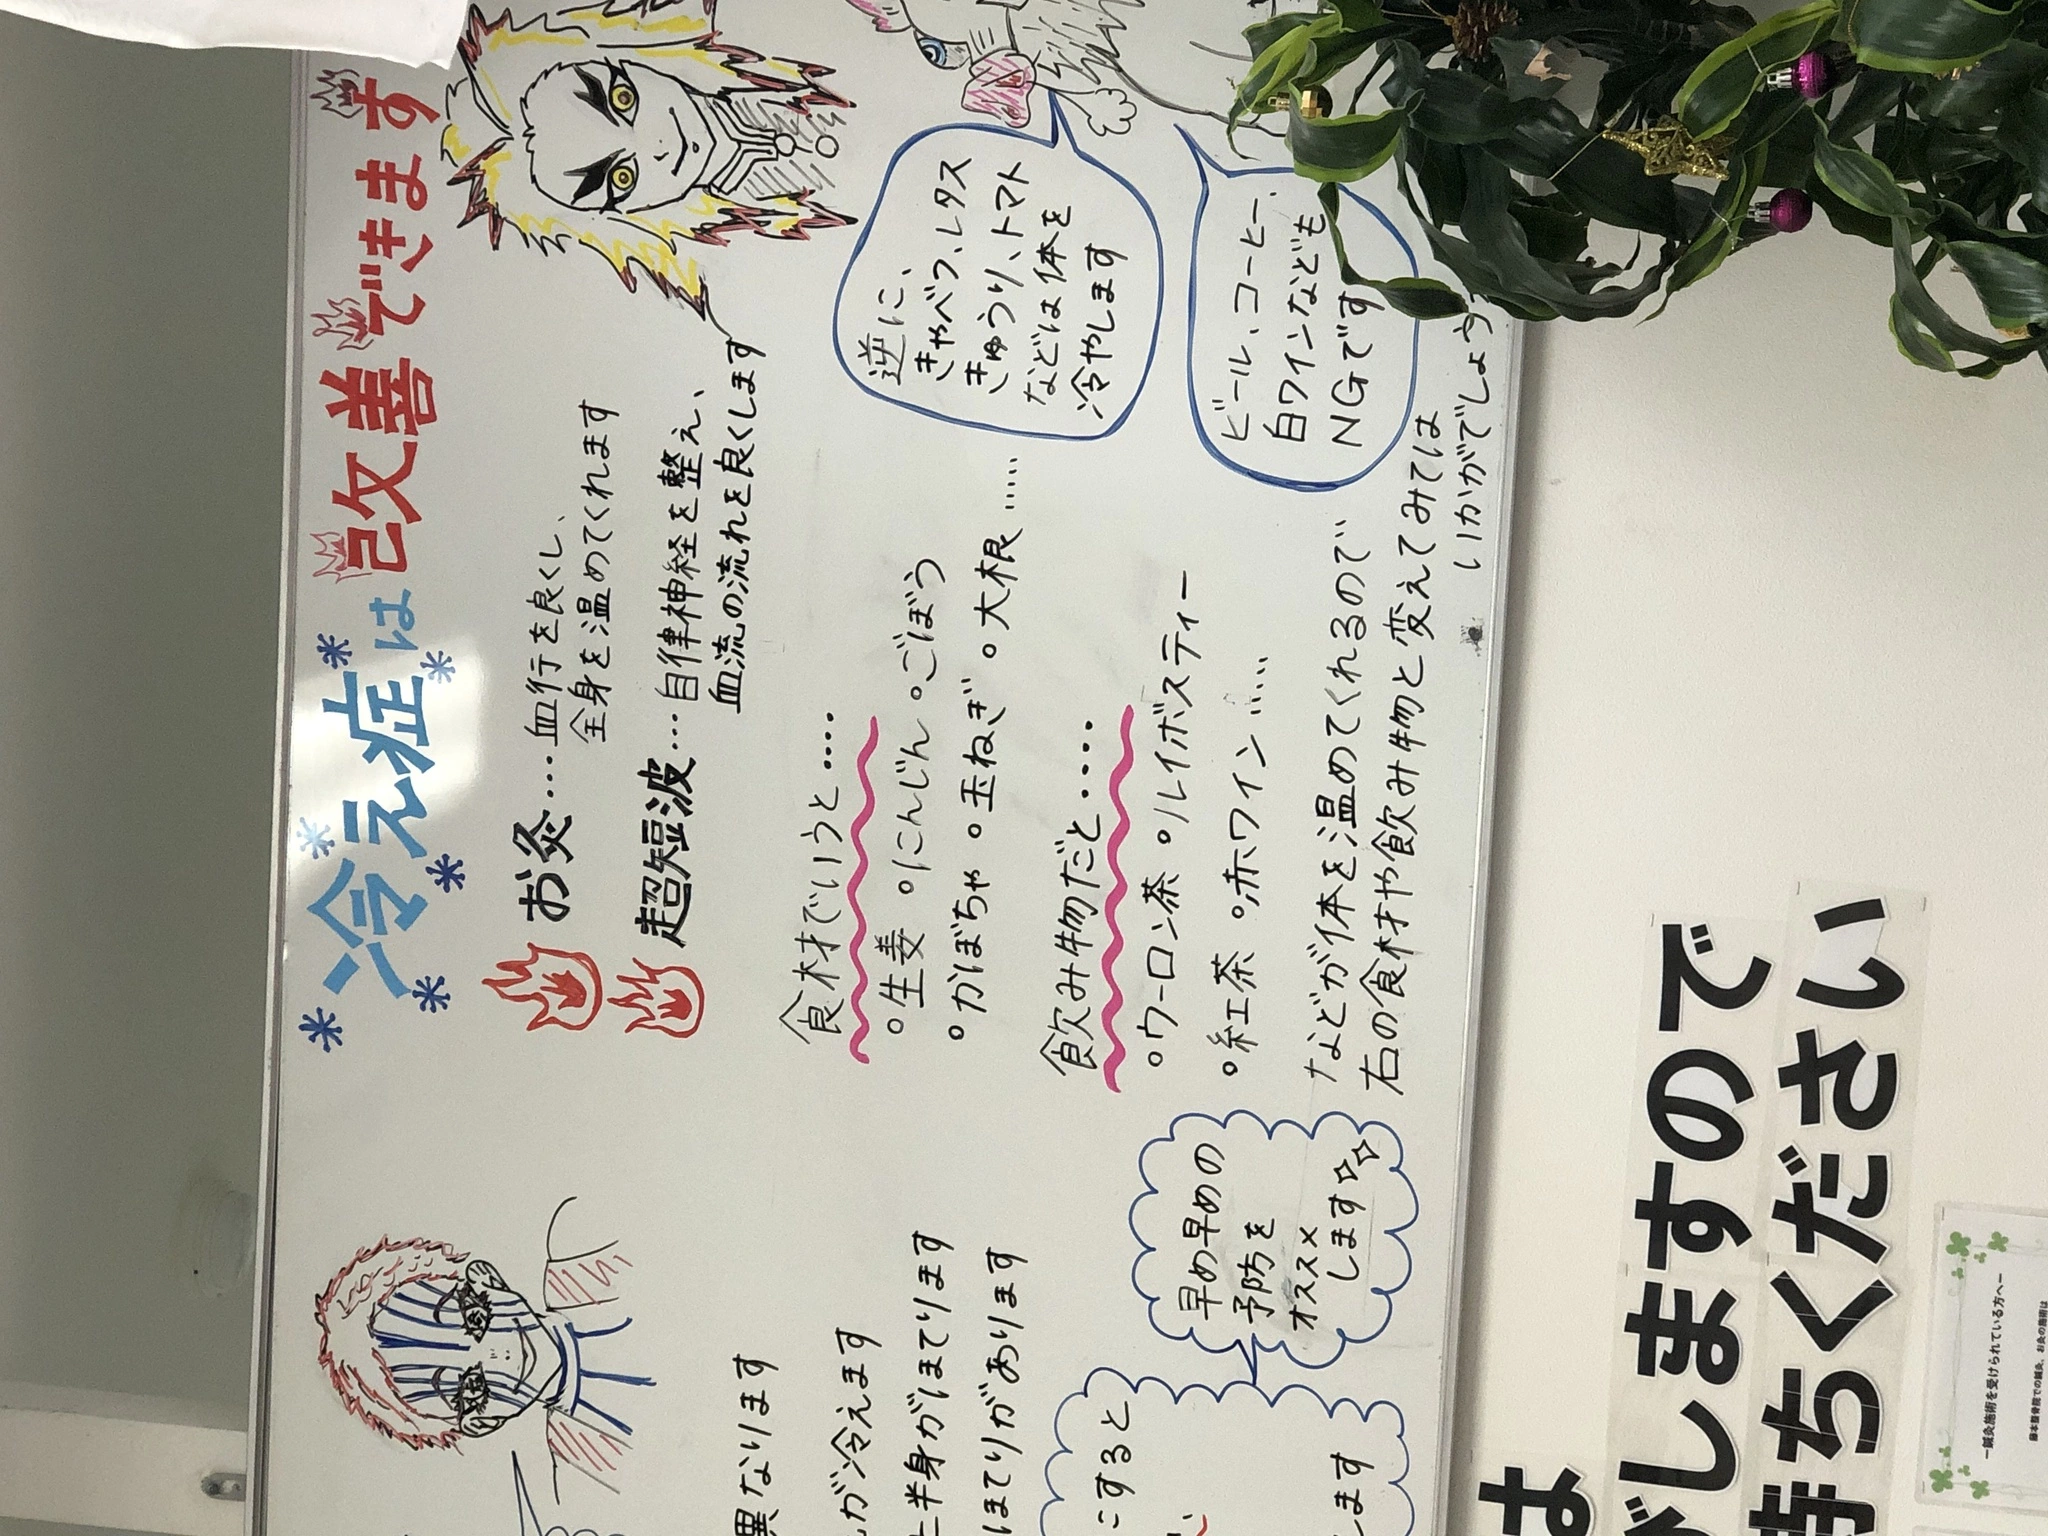 冷え症は改善できます
お灸…血行を良くし、
全身を温めてくれます
超短波…自律神経を整え、
血流の流れを良くします
食材でいうと....
。生姜 。にんじん 。ごぼう
。かぼちゃ 。玉ねぎ 。大根……
飲み物だと.....
。ウーロン茶 。ルイボスティー
。紅茶 。赤ワイン……
などが体を温めてくれるので
右の食材や飲み物と変えてみては
いかがでしょう
逆に、
きゃべつ、レタス
きゅうり、トマト
などは体を
冷やします
ビール、コーヒー、
白ワインなども
NGです
異なります
が冷えます
半身がほてります
ほてりがあります
こすると
します
早め早めの
予防を
オススメ
します
は
しますので
待ちください
ー鍼灸施術を受けられている方へー
藤本整骨院での鍼灸、お灸の施術は